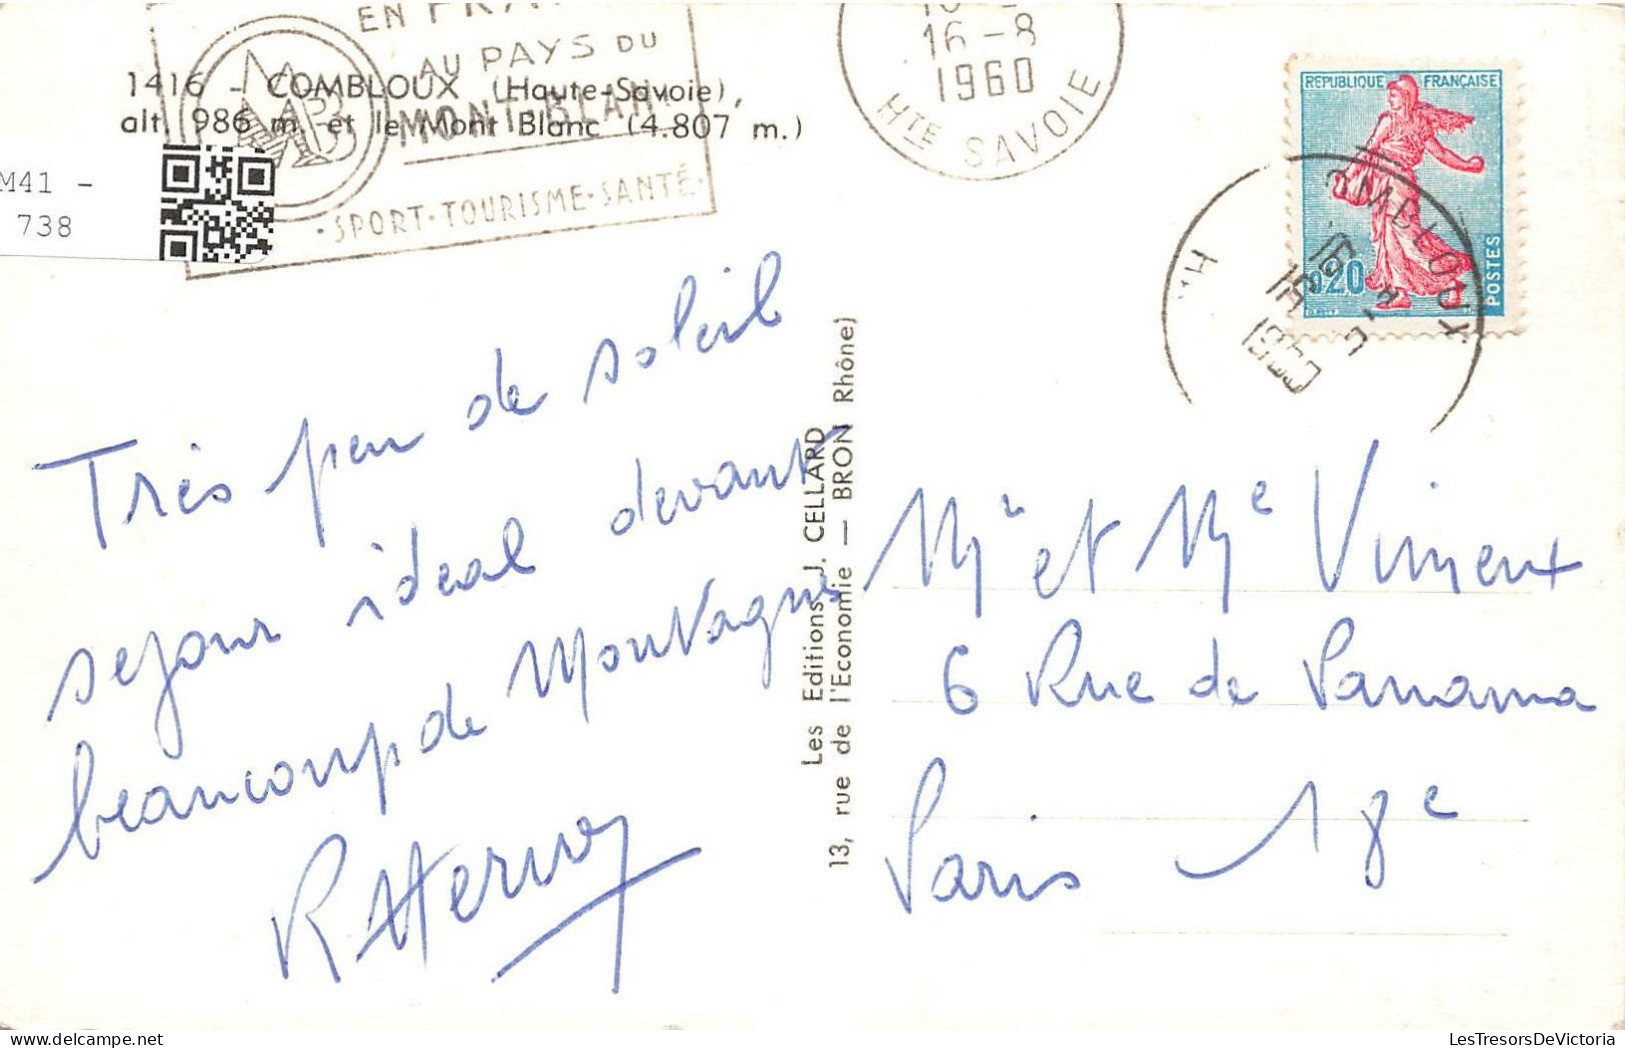 EN
AU PAYS DU
MONT-BLANC
SPORT-TOURISME-SANTÉ
1416 - COMBLOUX (Haute-Savoie),
alt. 986 m. et le Mont Blanc (4.807 m.)
M41 -
738
16-8
1960
HTE SAVOIE
REPUBLIQUE FRANÇAISE
0,20
POSTES
COMBLOUX
Très peu de soleil
sejour idéal devant
beaucoup de Montagnes
R Hervoy
Les Editions J. CELLARD
13, rue de l'Economie — BRON Rhône)
Mr et Me Viment
6 Rue de Panama
Paris 18e
LesTresorsDeVictoria